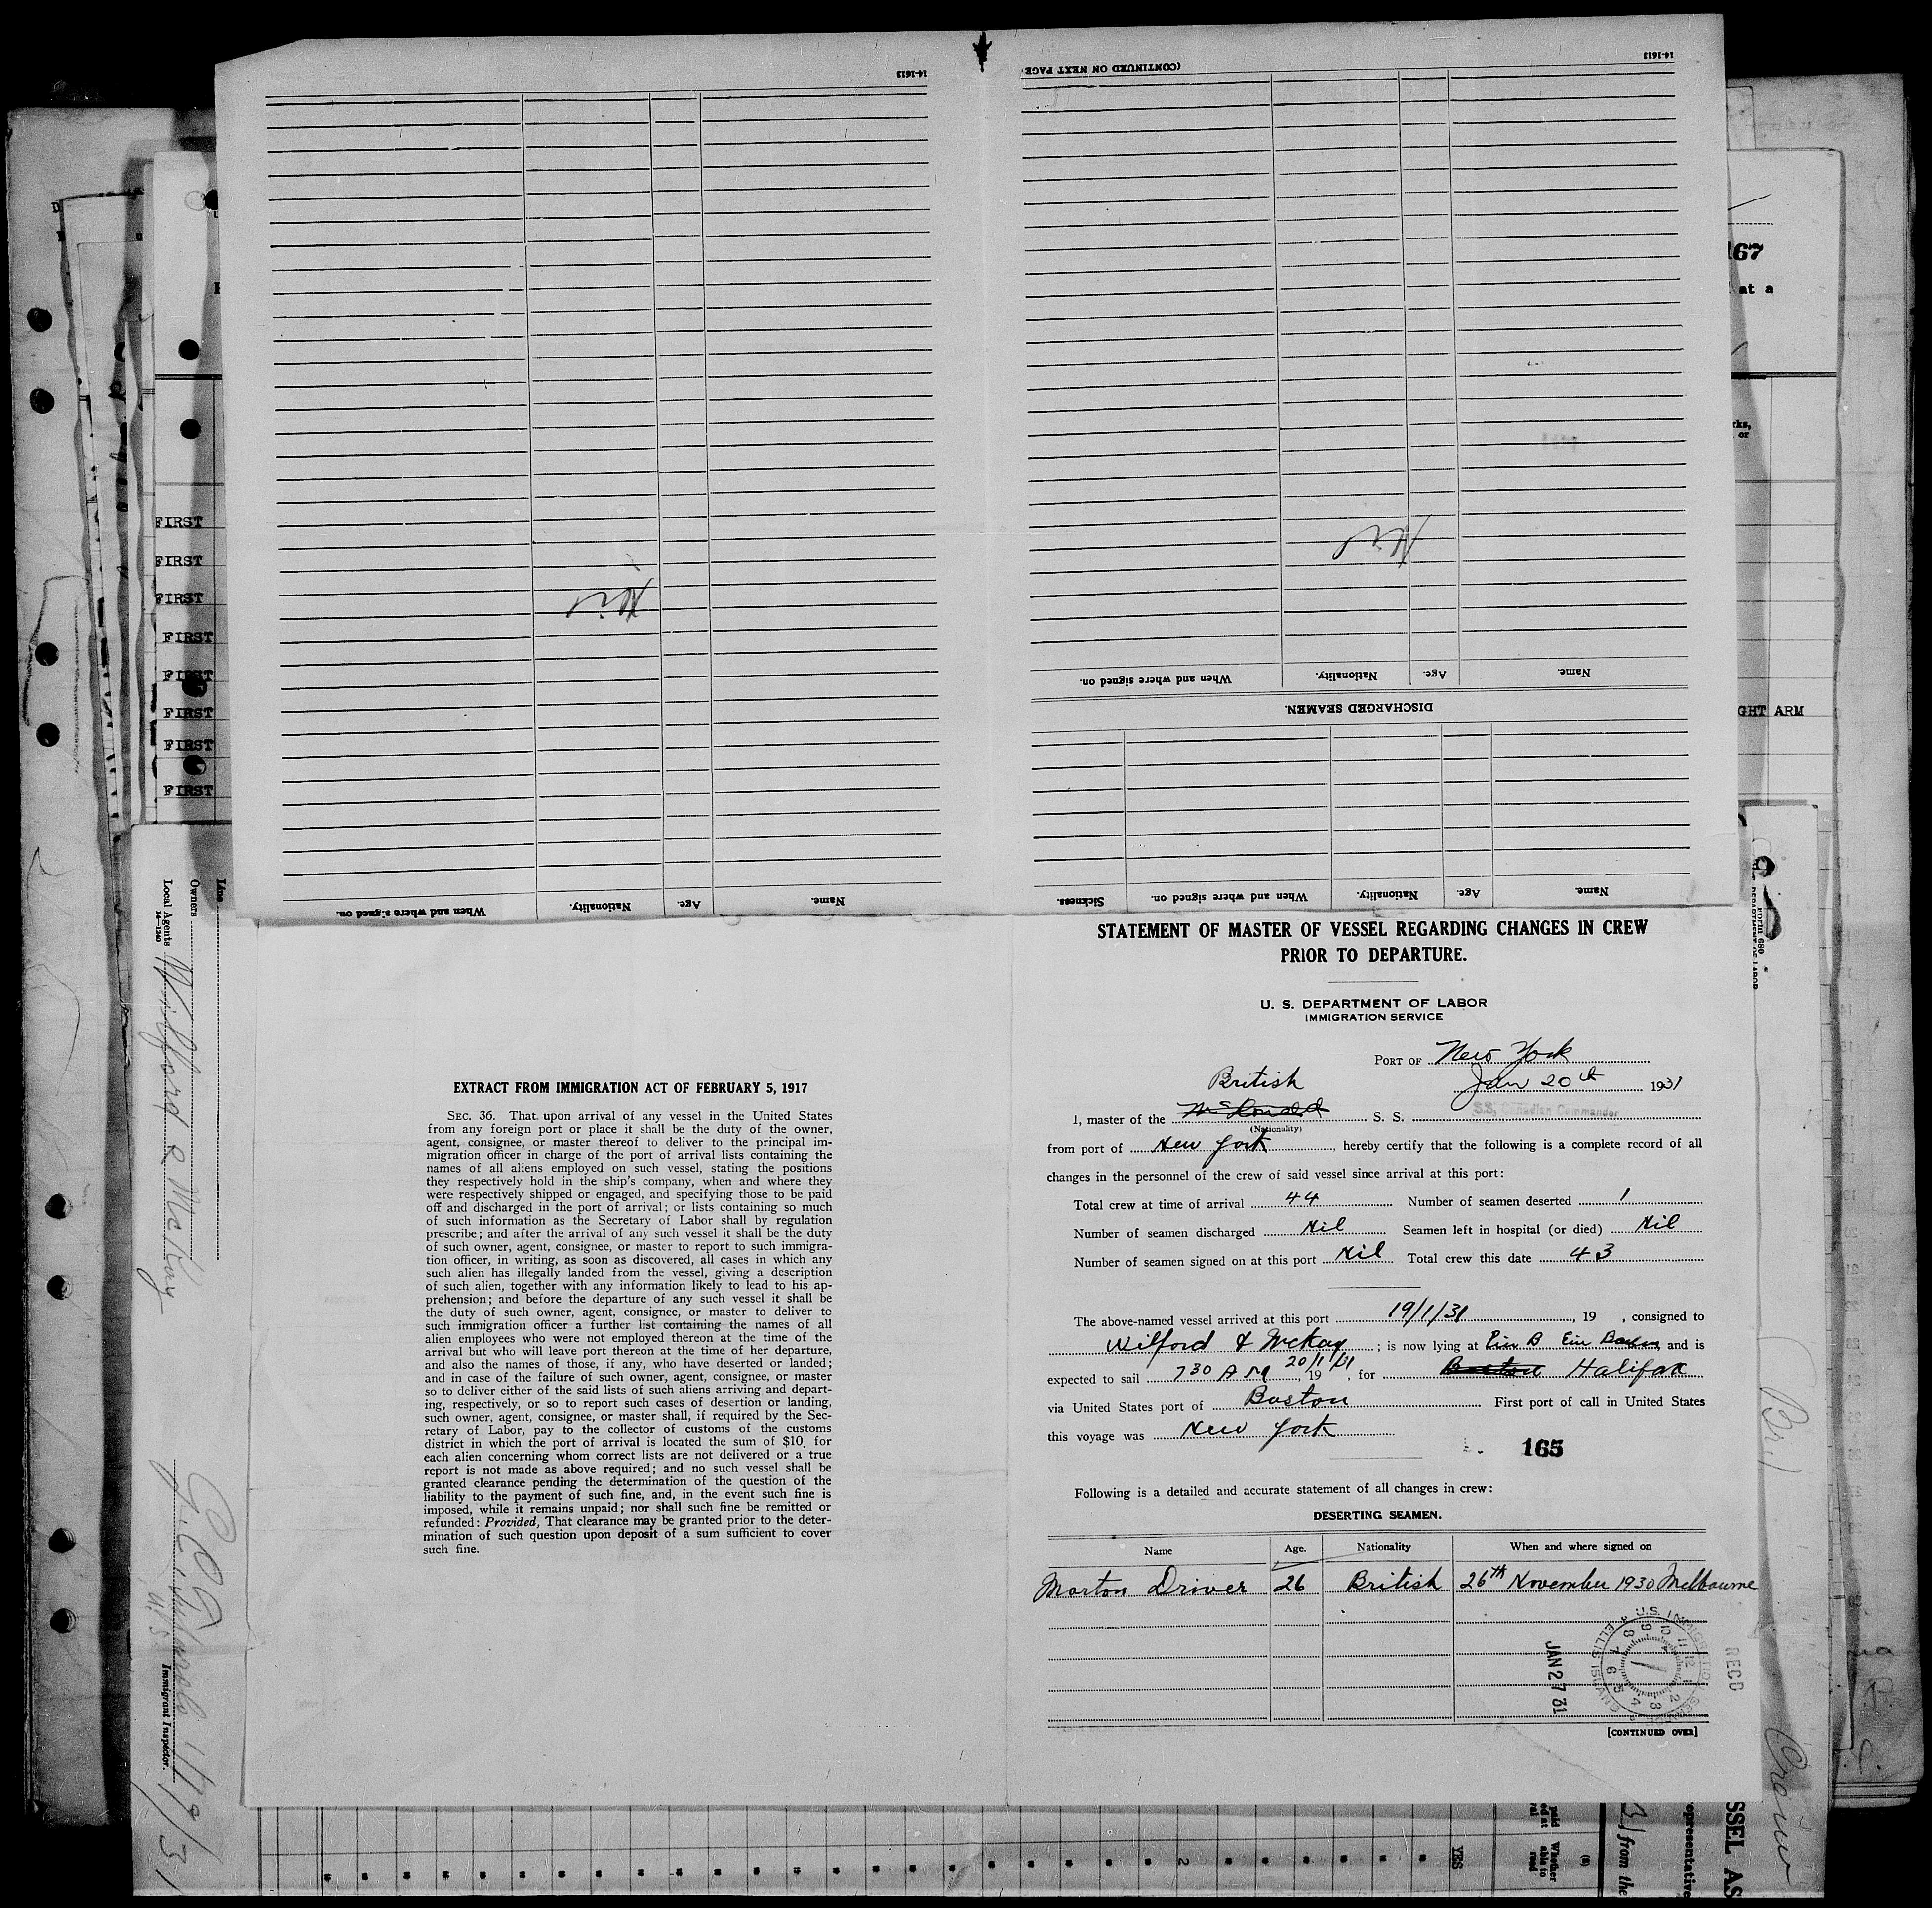 14-1613
(CONTINUED ON NEXT PAGE)
14-1613
Nil
Nil
When and where signed on.
Nationality.
Age.
Name.
DISCHARGED SEAMEN.
When and where signed on.
Nationality.
Age.
Name.
Sickness.
When and where signed on.
Nationality.
Age.
Name.
167
at a
rks,
or
FIRST
FIRST
FIRST
FIRST
FIRST
FIRST
FIRST
FIRST
GHT ARM
Line
Owners
Local Agents Wilford & McKay
14-1240
Immigrant Inspector.
Form 680
EXTRACT FROM IMMIGRATION ACT OF FEBRUARY 5, 1917
SEC. 36. That upon arrival of any vessel in the United States
from any foreign port or place it shall be the duty of the owner,
agent, consignee, or master thereof to deliver to the principal im-
migration officer in charge of the port of arrival lists containing the
names of all aliens employed on such vessel, stating the positions
they respectively hold in the ship's company, when and where they
were respectively shipped or engaged, and specifying those to be paid
off and discharged in the port of arrival; or lists containing so much
of such information as the Secretary of Labor shall by regulation
prescribe; and after the arrival of any such vessel it shall be the duty
of such owner, agent, consignee, or master to report to such immigra-
tion officer, in writing, as soon as discovered, all cases in which any
such alien has illegally landed from the vessel, giving a description
of such alien, together with any information likely to lead to his ap-
prehension; and before the departure of any such vessel it shall be
the duty of such owner, agent, consignee, or master to deliver to
such immigration officer a further list containing the names of all
alien employees who were not employed thereon at the time of the
arrival but who will leave port thereon at the time of her departure,
and also the names of those, if any, who have deserted or landed;
and in case of the failure of such owner, agent, consignee, or master
so to deliver either of the said lists of such aliens arriving and depart-
ing, respectively, or so to report such cases of desertion or landing,
such owner, agent, consignee, or master shall, if required by the Sec-
retary of Labor, pay to the collector of customs of the customs
district in which the port of arrival is located the sum of $10 for
each alien concerning whom correct lists are not delivered or a true
report is not made as above required; and no such vessel shall be
granted clearance pending the determination of the question of the
liability to the payment of such fine, and, in the event such fine is
imposed, while it remains unpaid; nor shall such fine be remitted or
refunded: Provided, That clearance may be granted prior to the deter-
mination of such question upon deposit of a sum sufficient to cover
such fine.
STATEMENT OF MASTER OF VESSEL REGARDING CHANGES IN CREW
PRIOR TO DEPARTURE.
U. S. DEPARTMENT OF LABOR
IMMIGRATION SERVICE
PORT OF New York
Jan 20th 1931
British
I, master of the McDonald S. S. S.S. Canadian Commander
(Nationality)
from port of New York, hereby certify that the following is a complete record of all
changes in the personnel of the crew of said vessel since arrival at this port:
Total crew at time of arrival 44 Number of seamen deserted 1
Number of seamen discharged Nil Seamen left in hospital (or died) Nil
Number of seamen signed on at this port Nil Total crew this date 43
The above-named vessel arrived at this port 19/1/31, 19 , consigned to
Wilford & McKay; is now lying at B and is
expected to sail 730 AM 20/1/31, 19 , for Boston Halifax
via United States port of Boston First port of call in United States
this voyage was New York
165
Following is a detailed and accurate statement of all changes in crew:
DESERTING SEAMEN.
Name Age. Nationality When and where signed on
Morton Driver 26 British 26th November 1930 Melbourne
JAN 27 31
U.S. IMMIGRATION SERVICE ELLIS ISLAND
RECD
[CONTINUED OVER]
YES
Whether able to read
(8)
from the
epresentative
SSEL AS